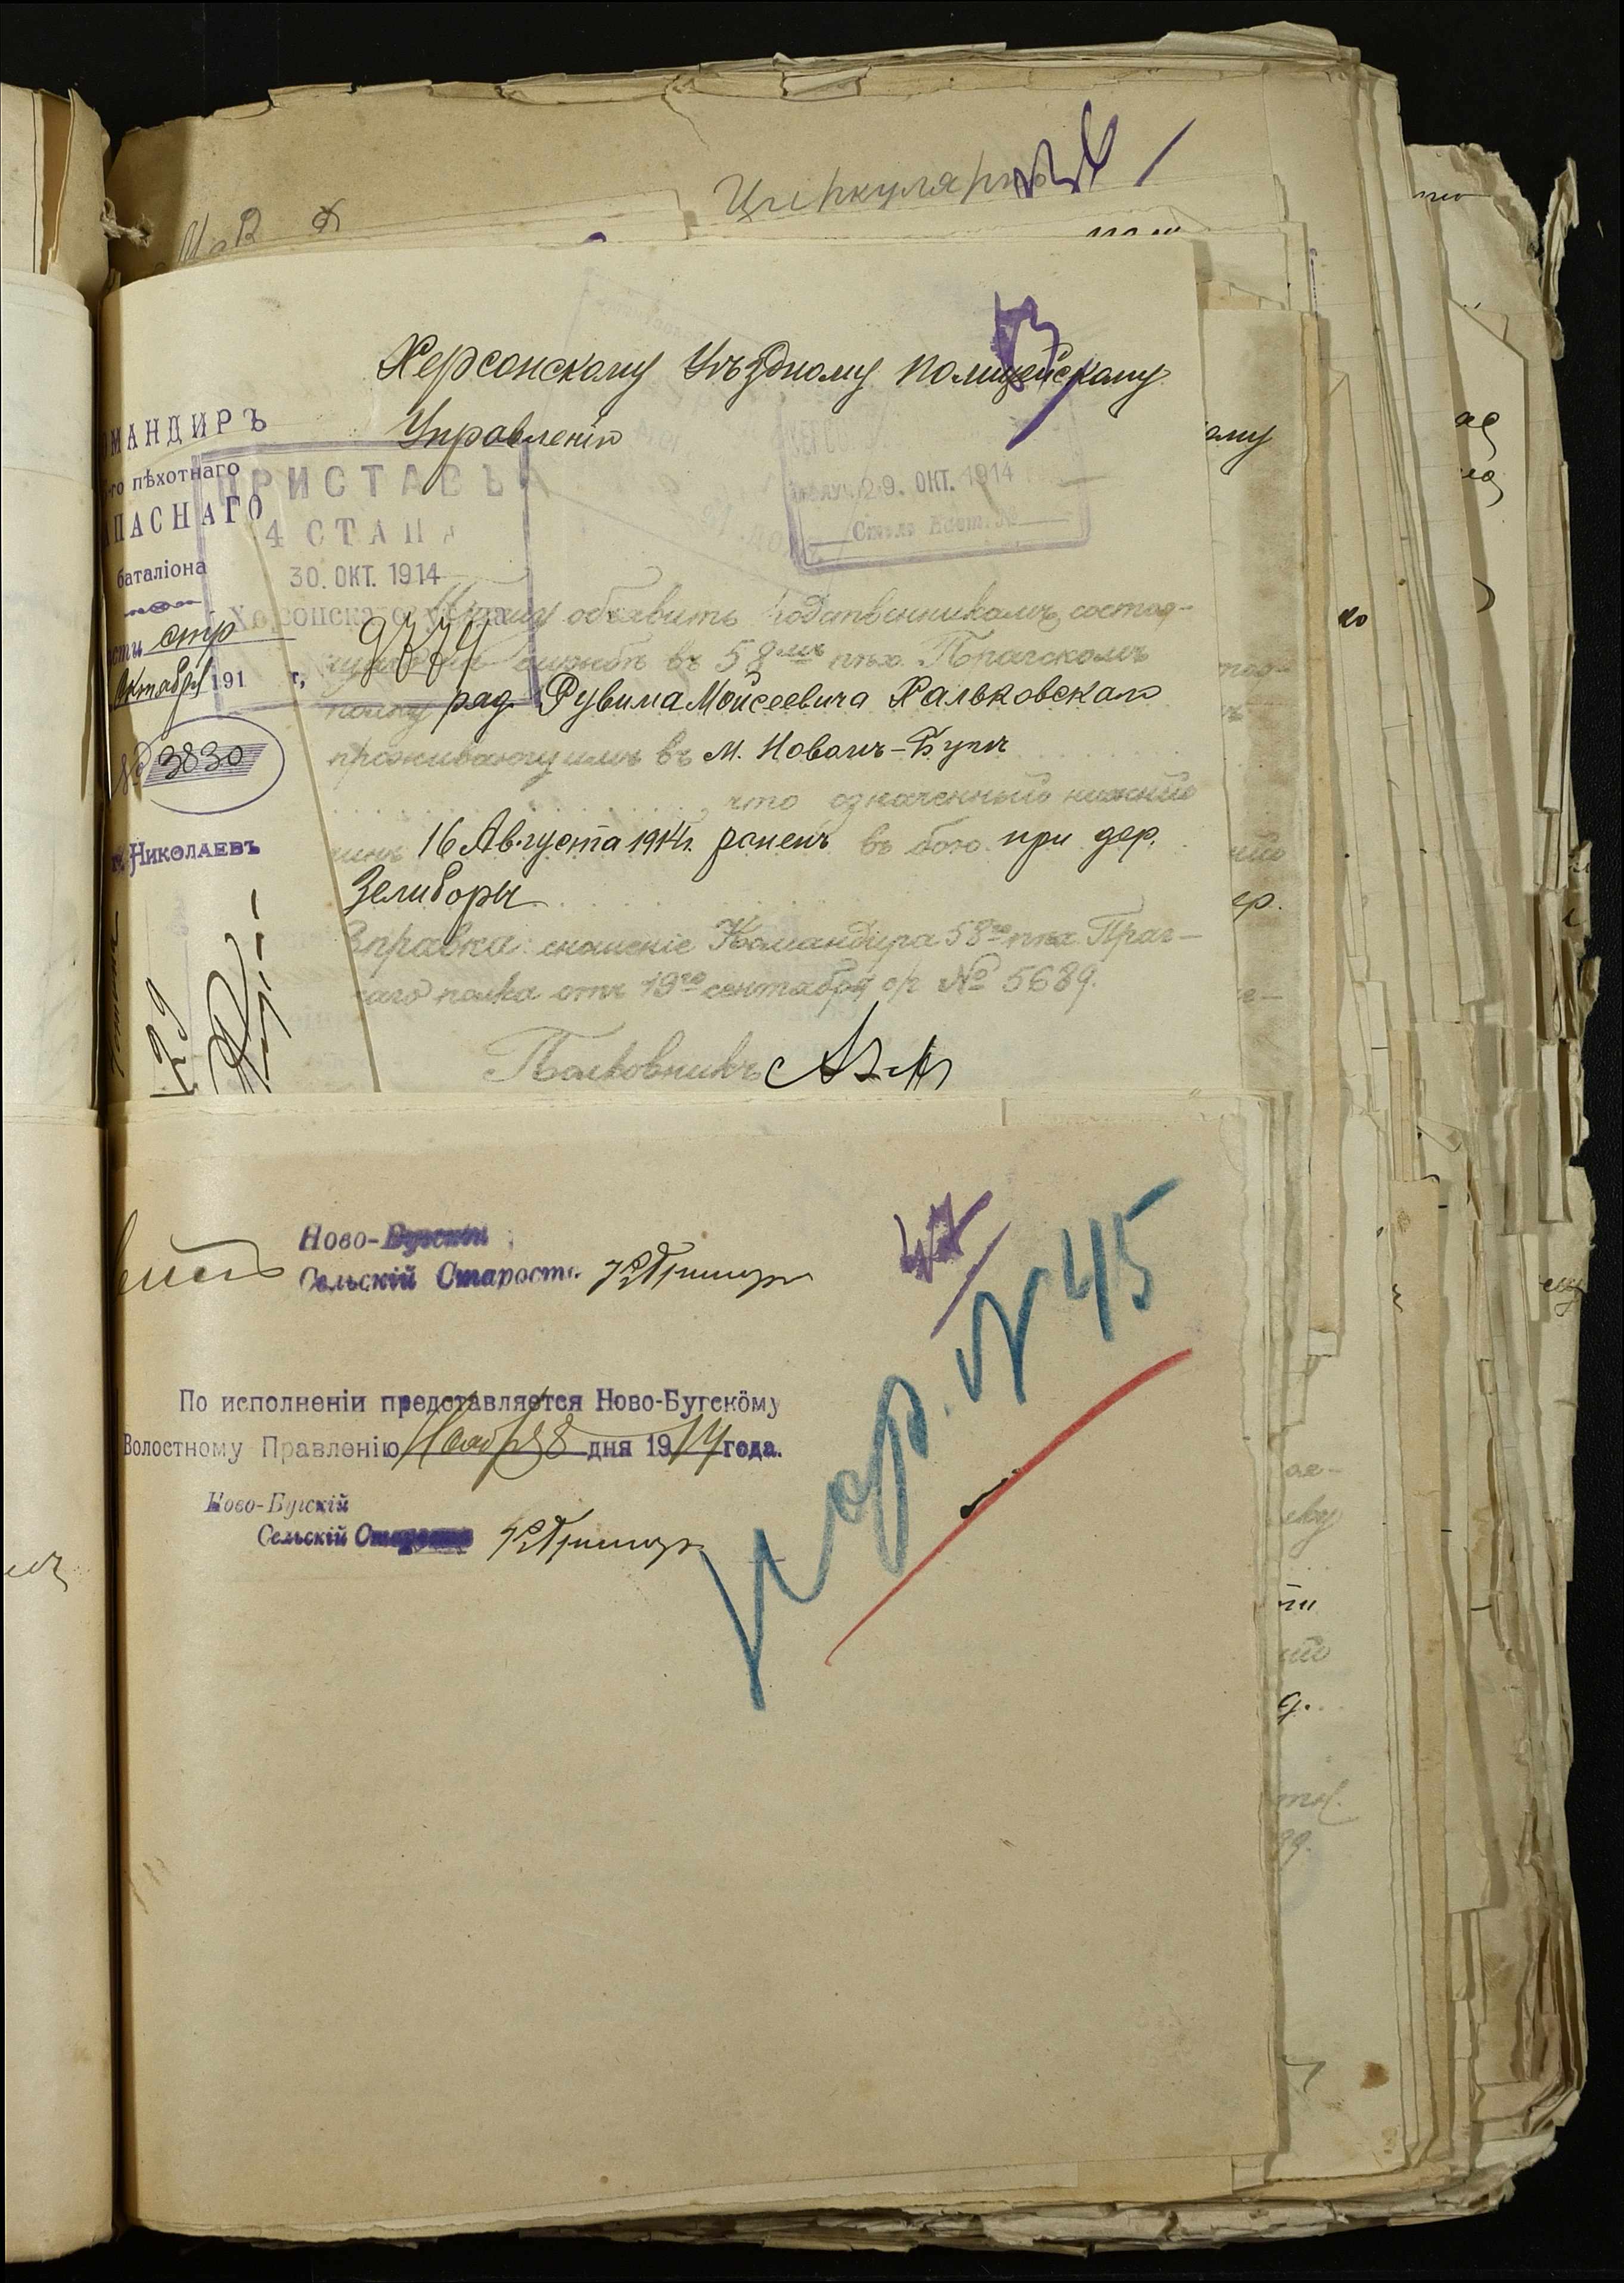 Циркулярно
Херсонскому Уѣздному Полицейскому
Управленію
КОМАНДИРЪ
го пѣхотнаго
ЗАПАСНАГО
баталіона
части стр
Октября 191 г.
№ 3830
г. НИКОЛАЕВЪ
ПРИСТАВЪ
4 СТАНА
30. ОКТ. 1914
Херсонскаго уѣзда
9774
29. ОКТ. 1914
Прошу объявить родственникамъ состоя-
щаго на службѣ въ 58мъ пѣх. Прагскомъ
полку ряд. Рувима Мойсеевича Хальковскаго
проживающимъ въ м. Новомъ-Бугѣ
что означенный нижній
чинъ 16 Августа 1914 г. раненъ въ бою при дер.
Зелиборы
Справка: сношеніе Командира 58го пѣх. Праг-
скаго полка отъ 19го сентября с/г № 5689.
Полковникъ
Ново-Бугскій
Сельскій Староста
47
Кор. № 45
По исполненіи представляется Ново-Бугскому
Волостному Правленію Ноября 8 дня 1914 года.
Ново-Бугскій
Сельскій Староста